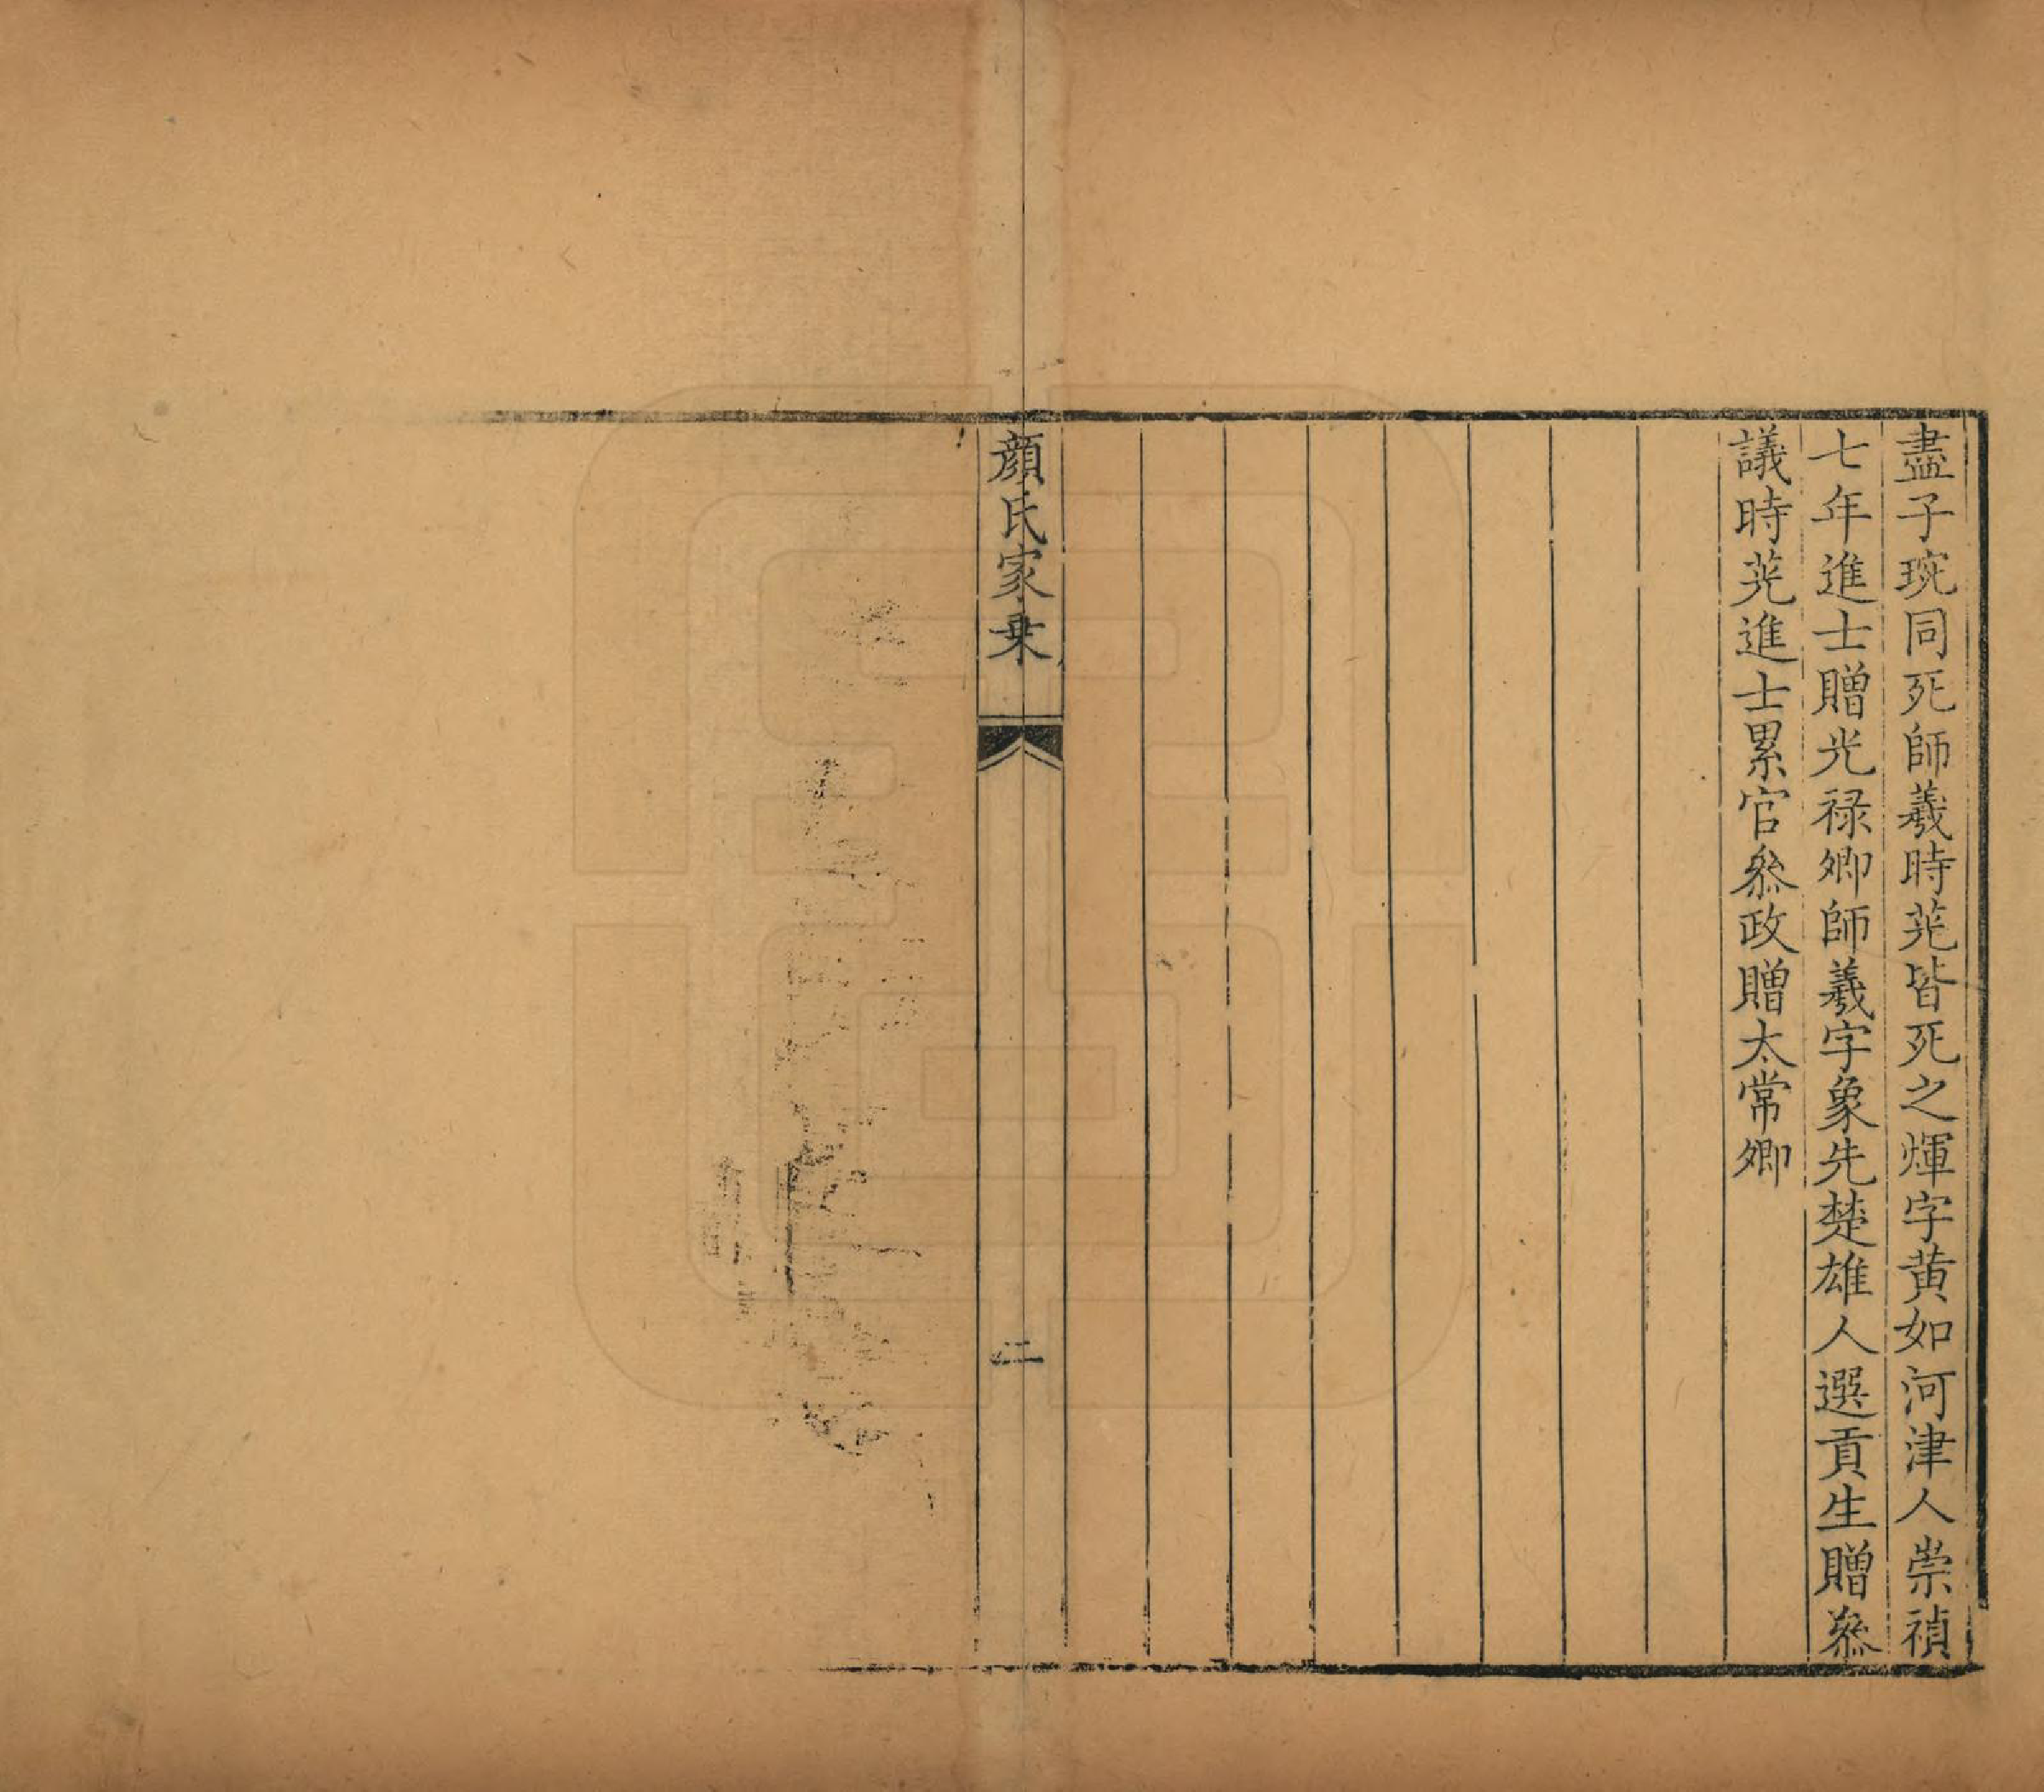 盡子琓同死師羲時茪皆死之煇字黄如河津人崇禎
七年進士贈光禄卿師羲字象先楚雄人選貢生贈叅
議時茪進士累官叅政贈太常卿
顔氏家乗
二